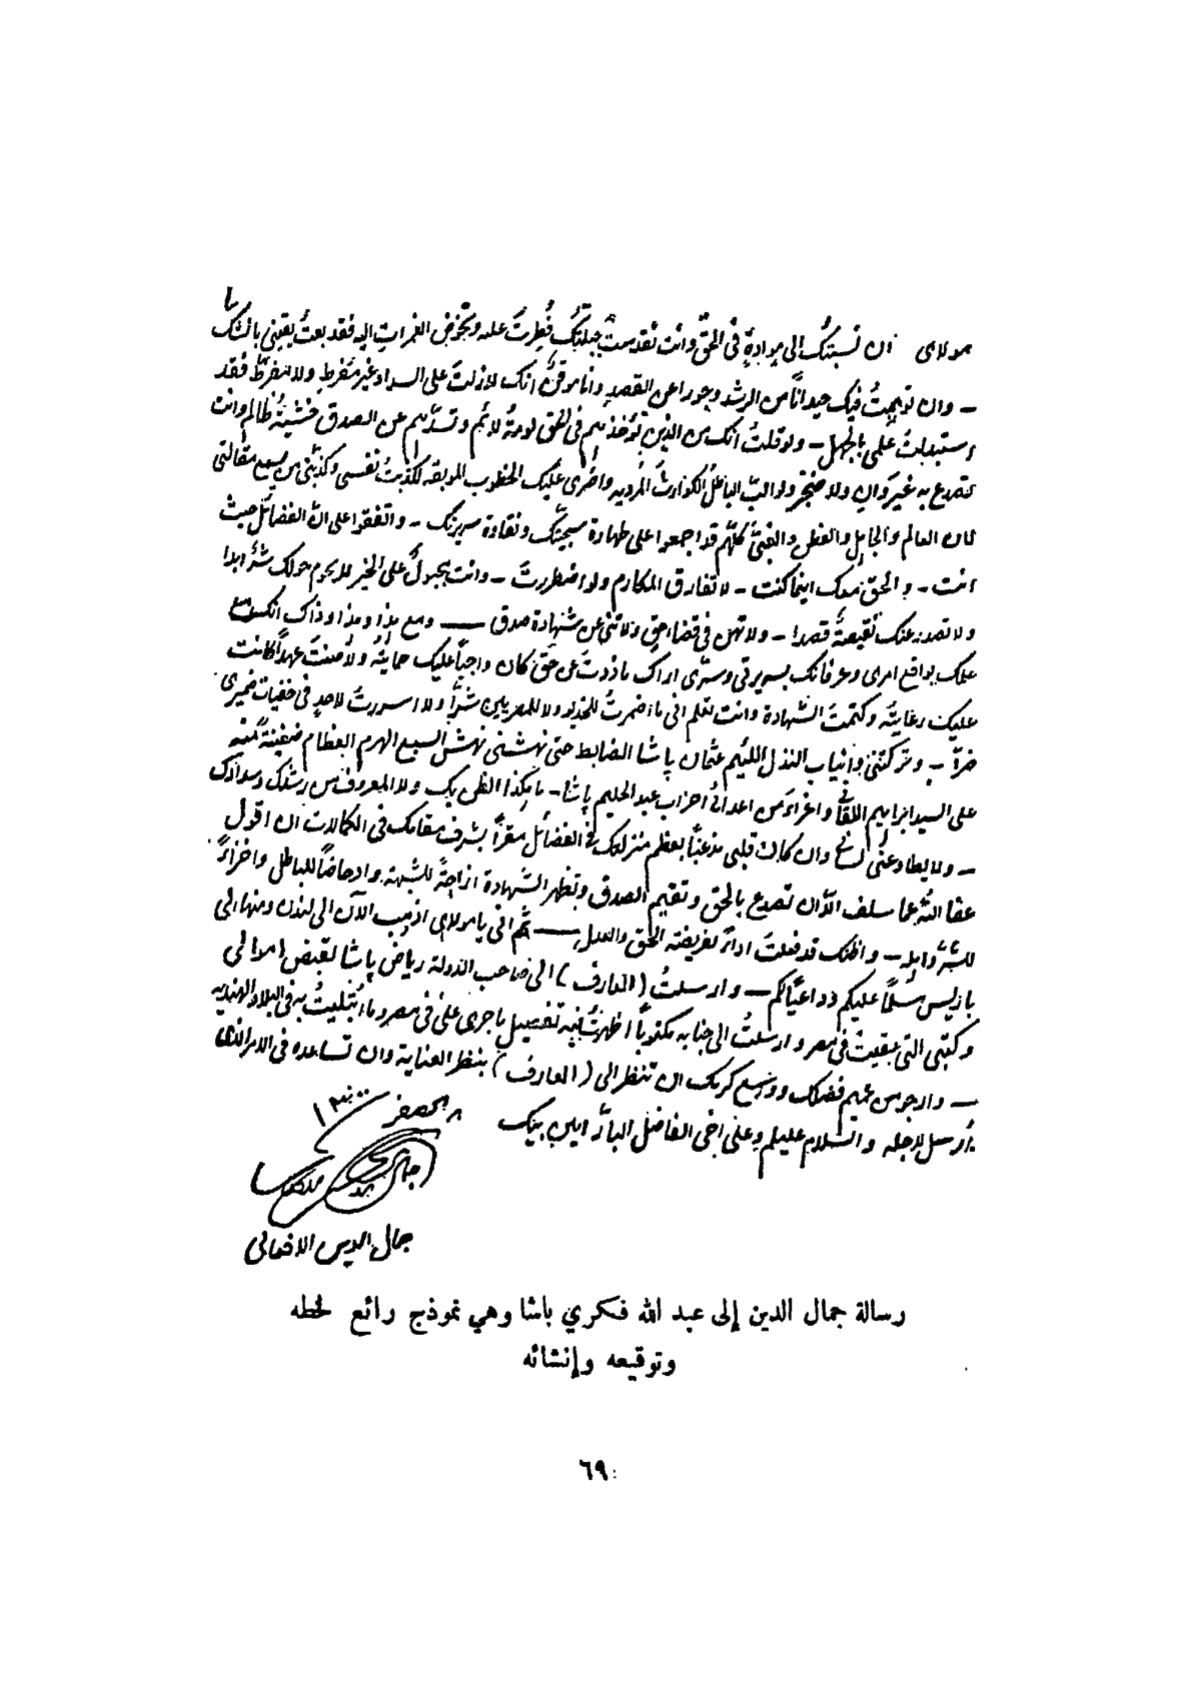 مولاى ان نسبتك الى موادة فى الحق وانت تقدست جبلتك فطرت عليه وتخوض الغمرات اليه فقد بعت يقينى بالشك
– وان توهمت فيك حيدانا من الرشد وجورا عن القصد وانا موقن انك لازلت على السداد غير مفرط ولا مفرط فقد
استبدلت علمى بالجهل – ولو قلت انك من الذين تؤخذهم فى الحق لومة لائم وتصدهم عن الصدق خشية ظالم وانت
تصدع به غير وان ولا ضجر ولو الب الباطل الكوارث المردية واغرى عليك الخطوب الموبقة لكذبت نفسى وكذبنى من يسمع مقالتى
لان العالم والجاهل والفطن والغبى كلهم قد اجمعوا على طهارة سجيتك ونقاوة سريرتك – واتفقوا على ان الفضائل حيث
انت – والحق معك اينما كنت – لا تفارق المكارم ولو اضطررت – وانت مجبول على الخير لا يحوم حولك شر ابدا
ولا تصدر عنك نقيصة قصدا – ولا تهن فى قضاء حق ولا تنى عن شهادة صدق — ومع هذا وهذا وذاك انك مع
علمك بواقع امرى وعرفانك بسريرتى وسرى اراك ما ذدت عن حق كان واجبا عليك حمايته ولا صنت عهدا كانت
عليك رعايته وكتمت الشهادة وانت تعلم انى ما اضمرت للخديو ولا للمصريين شرا ولا اسررت لاحد فى خفيات ضميرى
ضرة – وتركتنى وانياب النذل اللئيم عثمان پاشا الضابط حتى نهشنى نهش السبع الهرم العظام ضغينة منه
على السيد ابراهيم اللقانى واغراء من اعدائى احزاب عبد الحليم پاشا – ما هكذا الظن بك ولا المعروف من رشدك وسدادك
– ولا يطاوعنى لسانى وان كان قلبى مذعنا بعظم منزلتك فى الفضائل مقرا بشرف مقامك فى الكمالات ان اقول
عفا الله عما سلف الا ان تصدع بالحق وتقيم الصدق وتظهر الشهادة ازاحة للشبهة وادحاضا للباطل واخزاء
للشر واهله – واظنك قد فعلت اداء لفريضة الحق والعدل — ثم انى يا مولاى اذهب الآن الى لندن ومنها الى
باريس مسلما عليكم وداعيا لكم — وارسلت (العارف) الى صاحب الدولة رياض پاشا لقبض اموالى
وكتبى التى بقيت فى مصر وارسلت الى جنابه مكتوبا اظهرت فيه تفصيل ما جرى على فى مصر وما ابتليت به فى البلاد الهنديه
— وارجو من عميم فضلك ووسيع كرمك ان تنظر الى (العارف) بنظر العناية وان تساعده فى الامر الذى
ارسل لاجله والسلام عليكم وعلى اخى الفاضل البار امين بيك
٨ صفر سنه ١٣٠٠
جمال الدين الافغانى
رسالة جمال الدين إلى عبد الله فكري باشا وهي نموذج رائع لخطه
وتوقيعه وإنشائه
٦٩